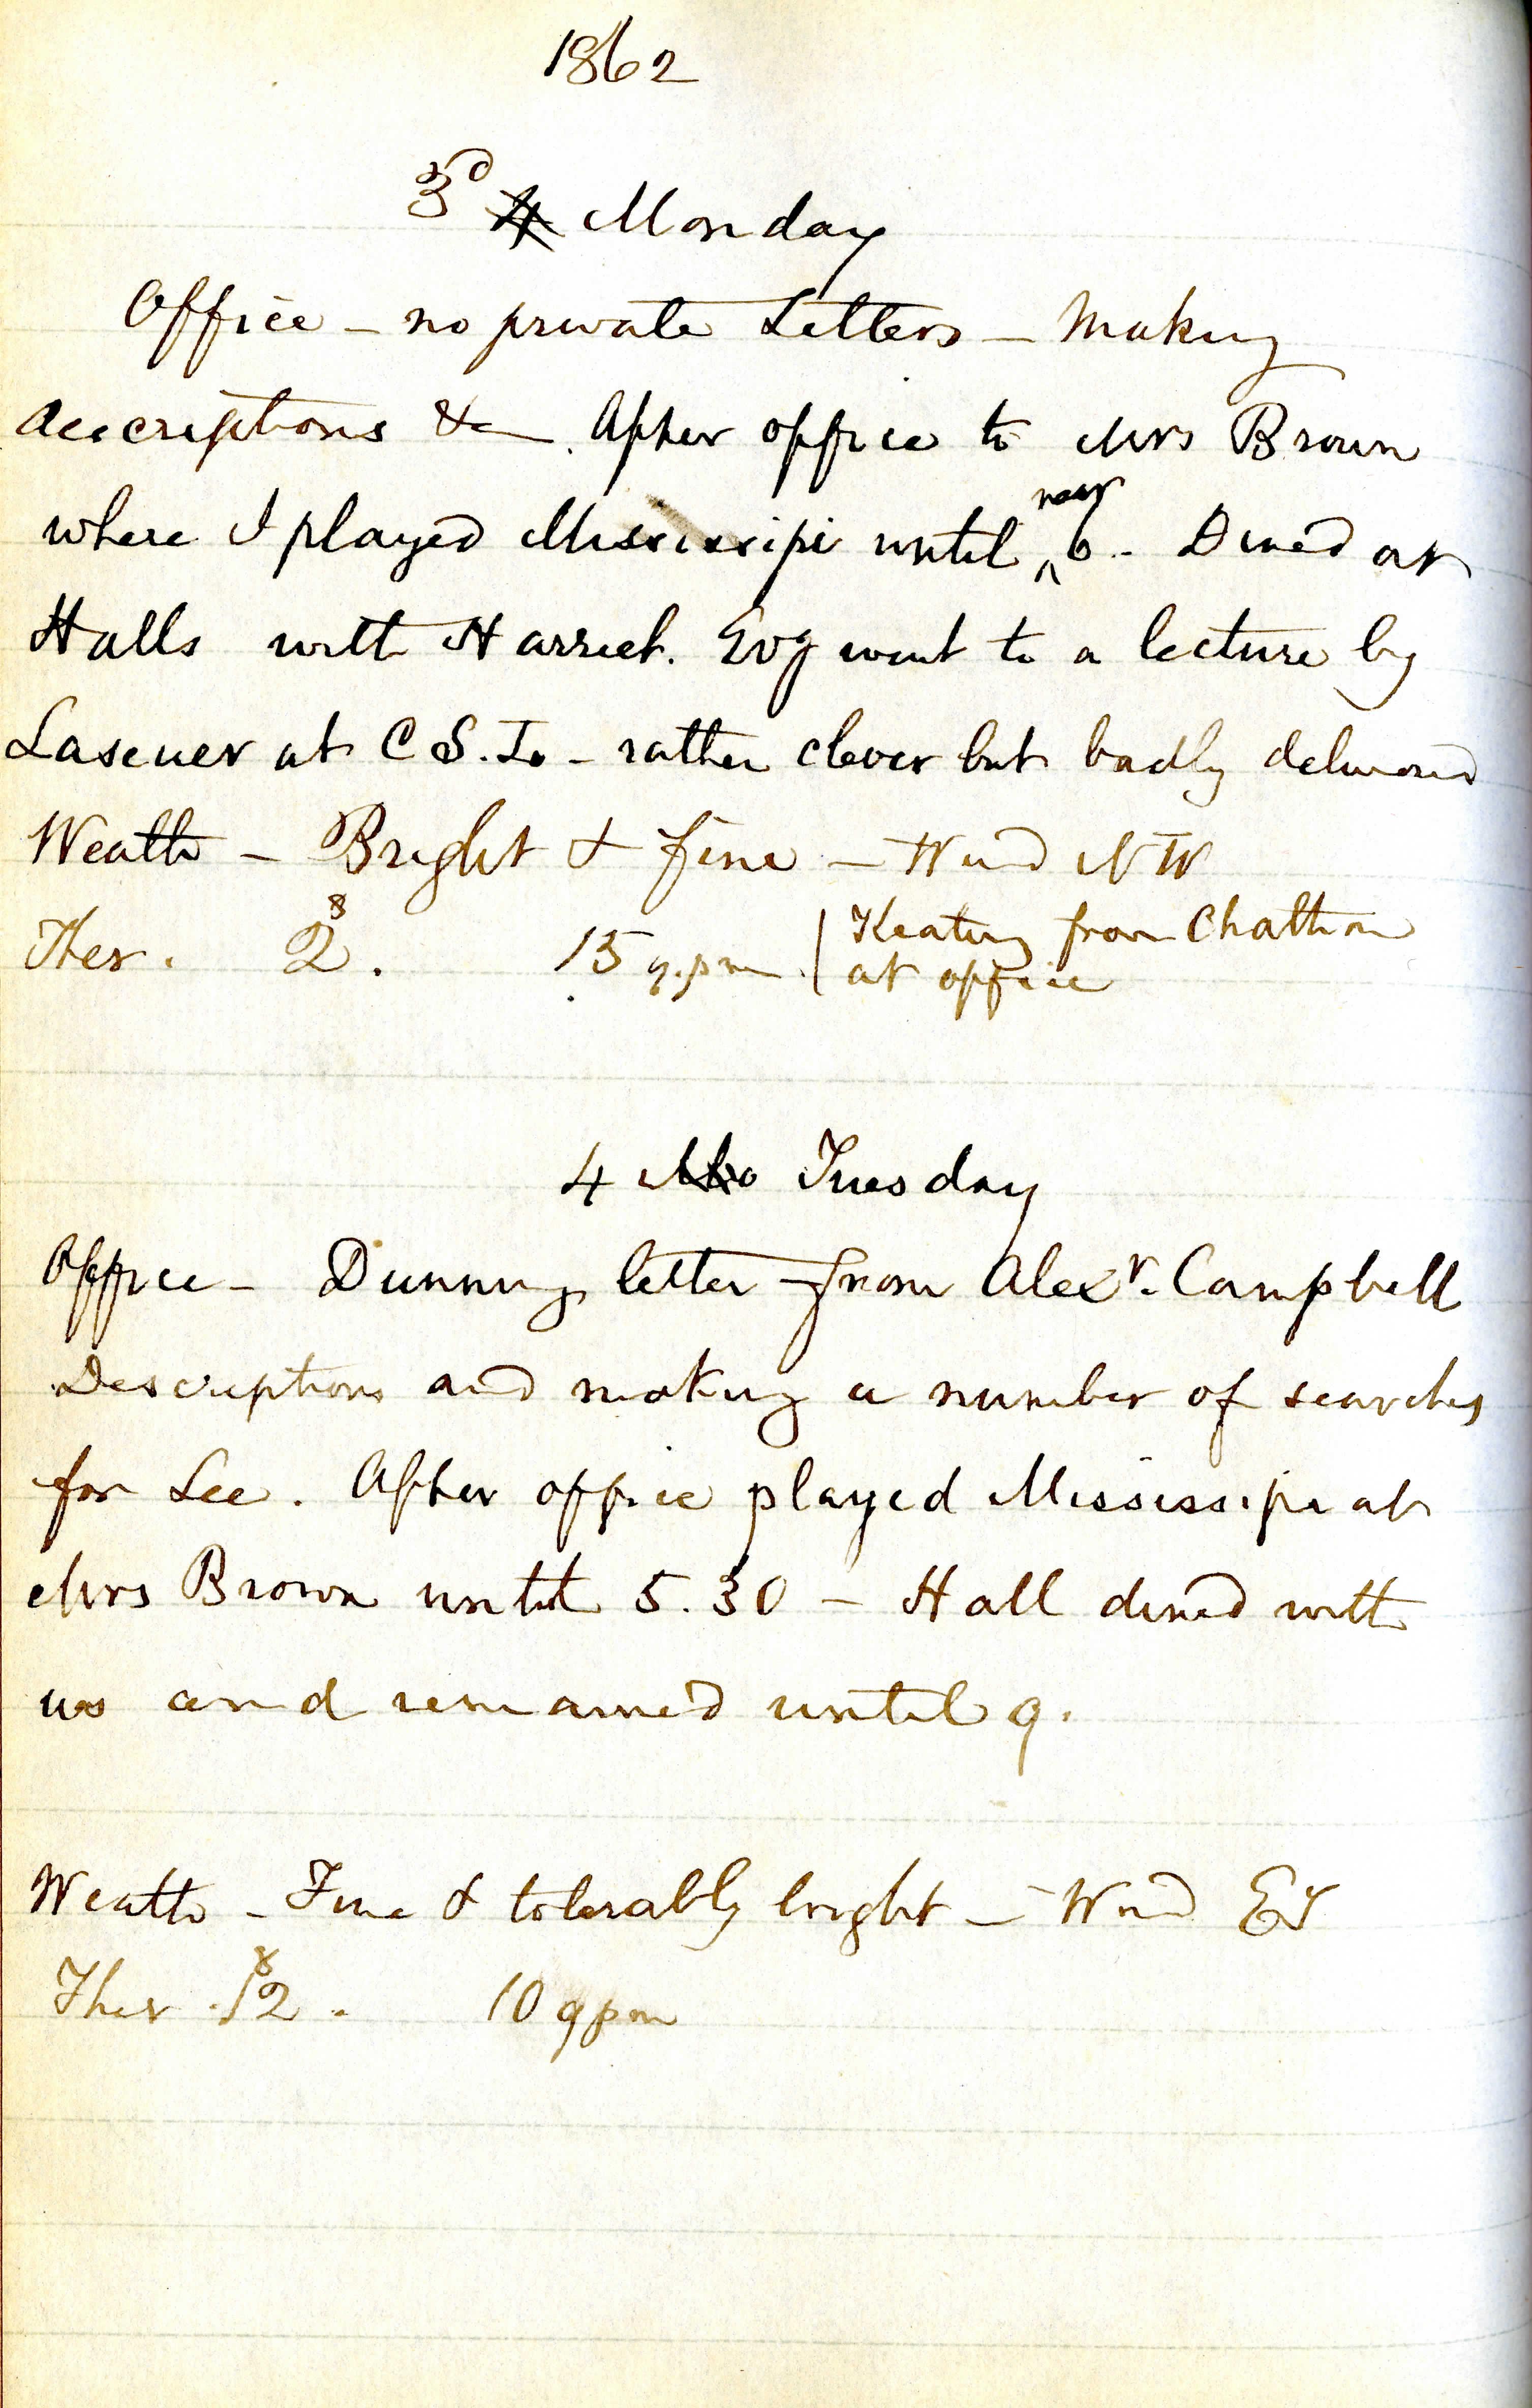 1862
3d 4 Monday
Office - no private Letters - Making
descriptions &c - After office to Mrs Brown
where I played Missisipi until near 6 - Dined at
Halls with Harriet. Evg went to a lecture by
at C S. I. - rather clever but badly delivered
Weathr - Bright & fine - Wind NW
Ther. 8 2. 15 9.pm. Keating from Chattham
at office
4 Mo Tuesday
Office - Dunning letter from Alexr. Campbell
Descriptions and making a number of searches
for Lee. After office played Mississipi at
Mrs Brown until 5.30 - Hall dined with
us and remained until 9.
Weathr - Fine & tolerably bright - Wind
Ther. 8 12. 10 9pm